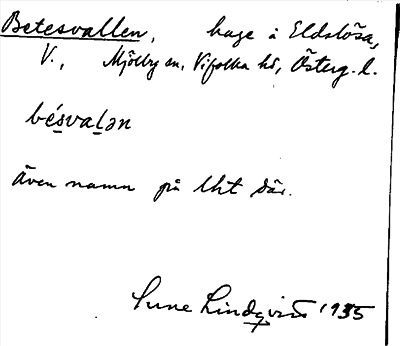 Betesvallen, hage å Eldslösa,
V., Mjölby sn, Vifolka hd, Österg. l.
bésvalən
Även namn på lht där.
Sune Lindqvist 1935